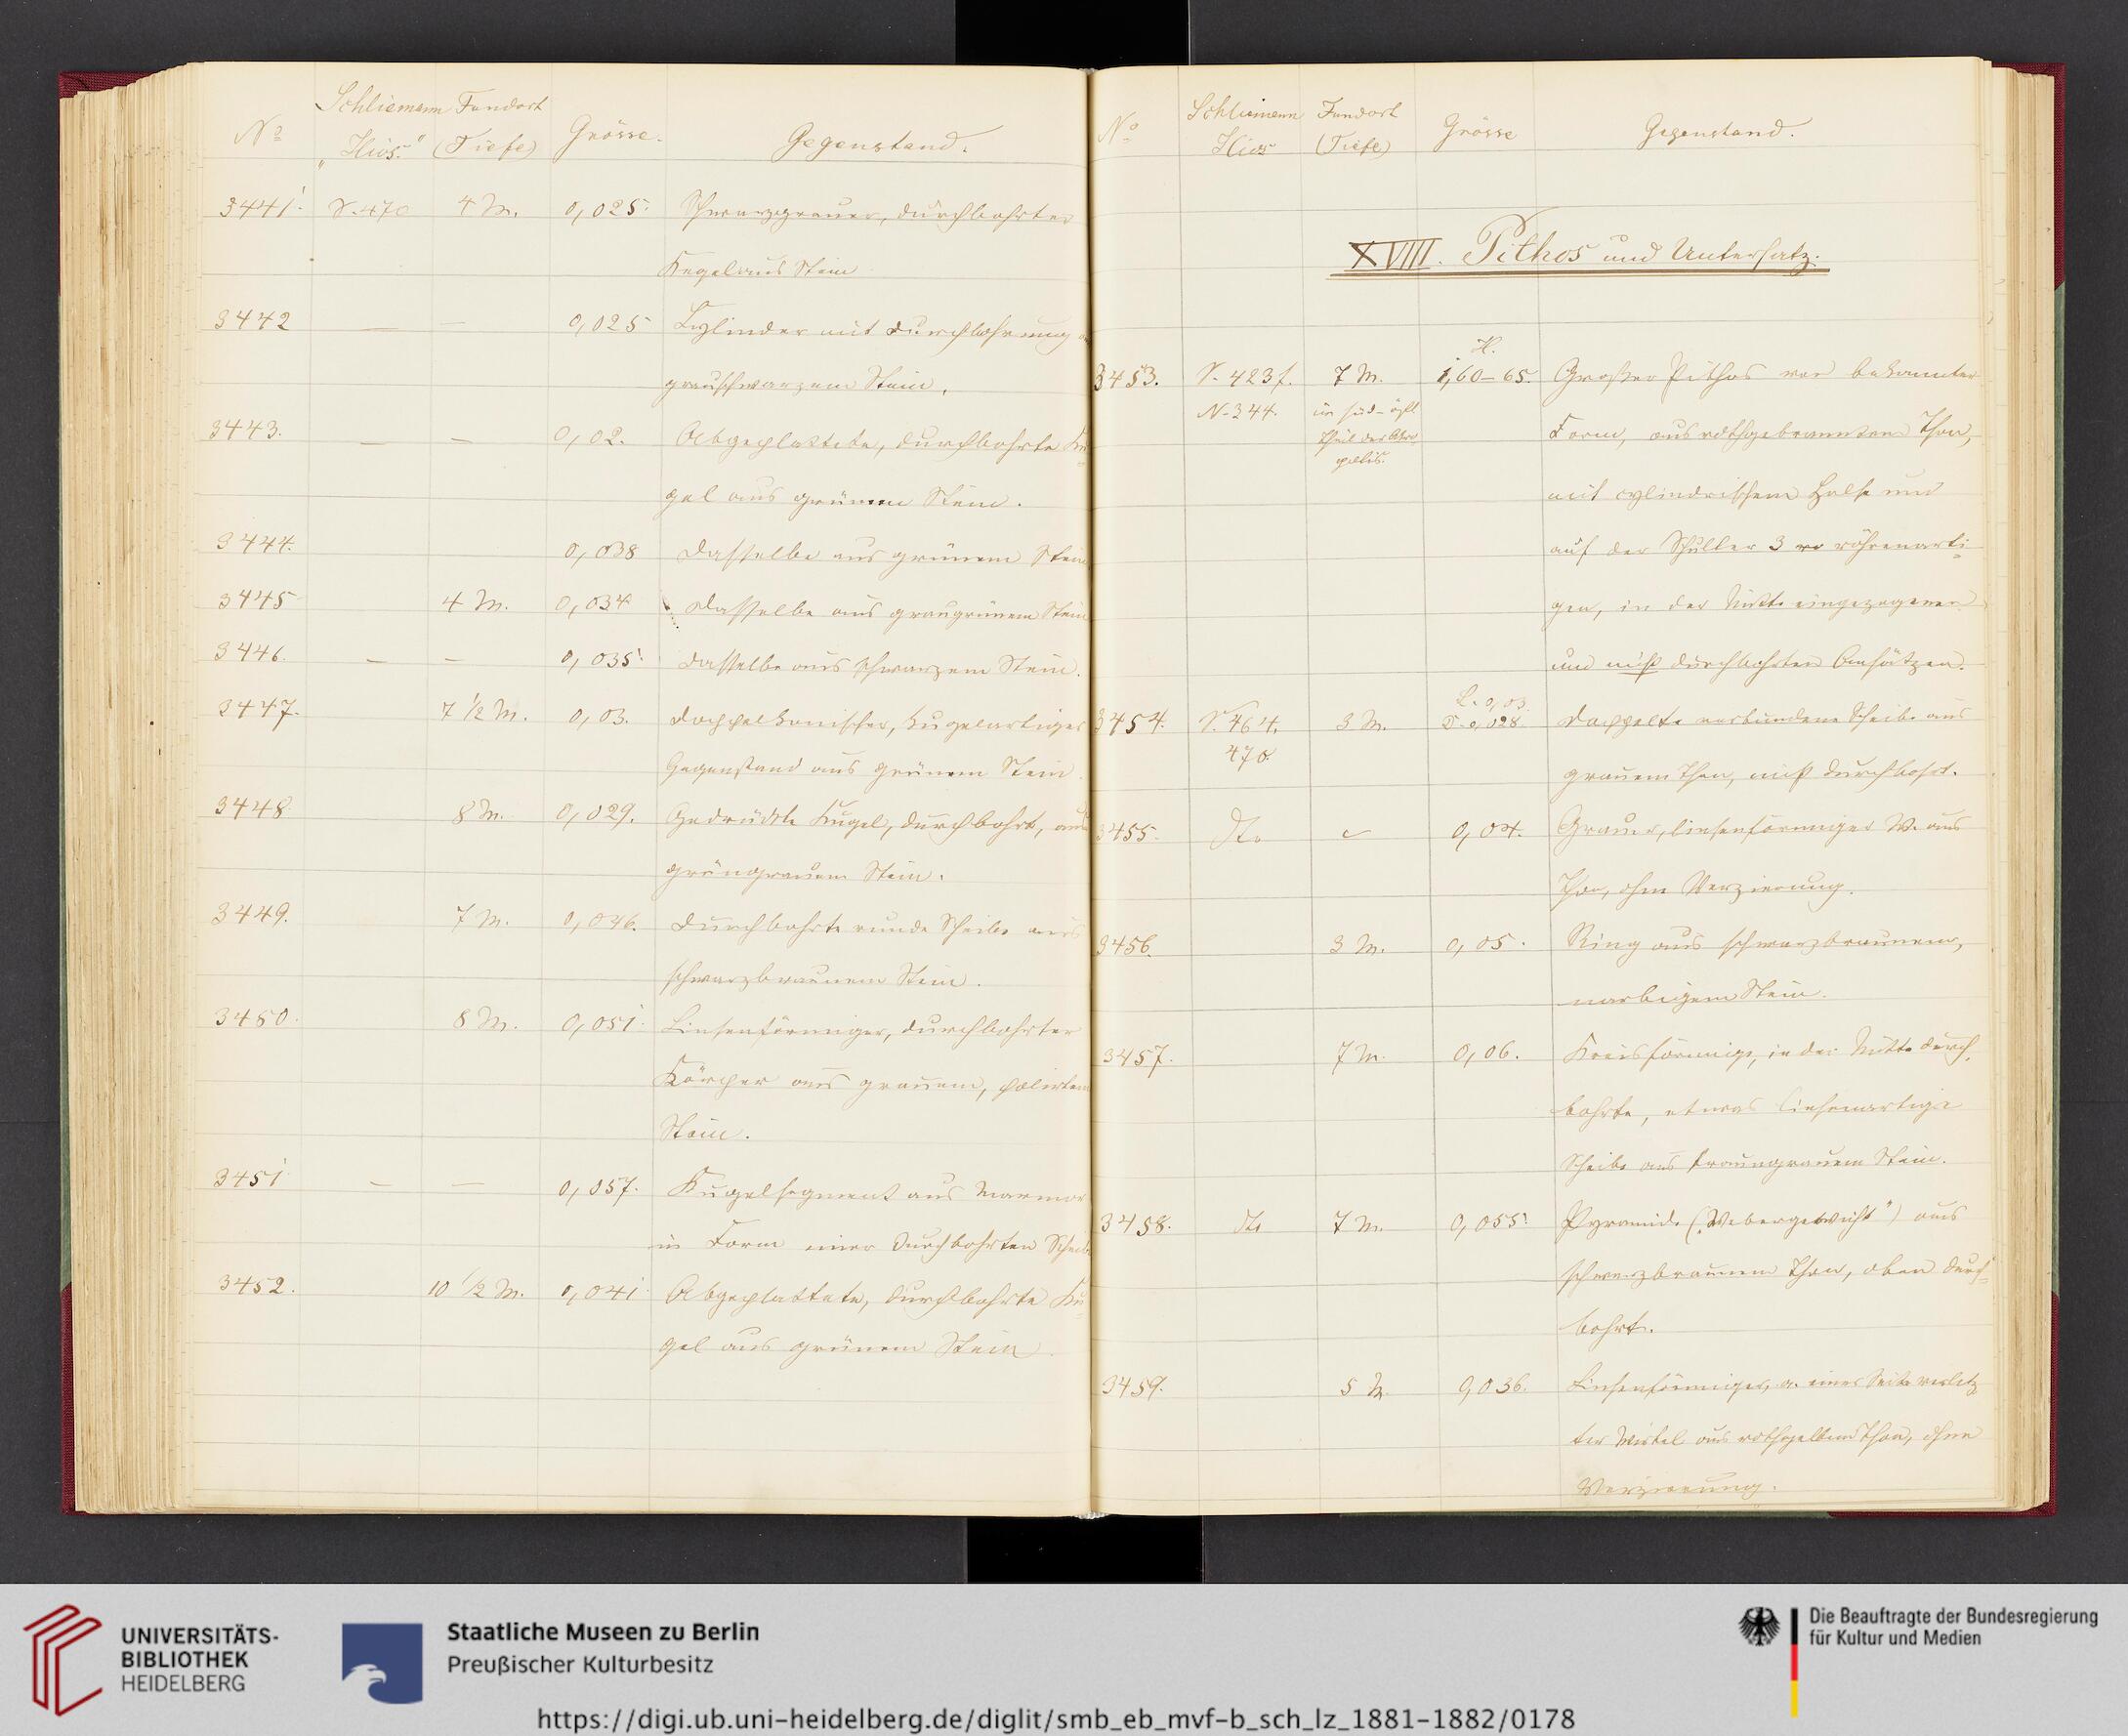 Schliemann Fundort
No „Ilios“ (Tiefe) Grösse. Gegenstand.
3441. S. 470 4 M. 0,025. Schwarzgrauer, durchbohrter
Kegel aus Stein
3442 — — 0,025 Cylinder mit Durchbohrung
grauschwarzem Stein.
3443. — — 0,02. Abgeplattete, durchbohrte Ku-
gel aus grünem Stein.
3444. 0,038 Dasselbe aus grünem Stein
3445 4 M. 0,034 Dasselbe aus graugrünem Stein
3446. — — 0,035. Dasselbe aus schwarzem Stein.
3447. 7 1/2 M. 0,03. Doppelkonischer, kugelartiger
Gegenstand aus grünem Stein
3448 8 M. 0,029. Gedrückte Kugel, durchbohrt, aus
grüngrauem Stein.
3449. 7 M. 0,046. Durchbohrte runde Scheibe aus
schwarzbraunem Stein.
3450. 8 M. 0,051. Linsenförmiger, durchbohrter
Körper aus grauem, polirtem
Stein.
3451 — — 0,057. Kugelsegment aus Marmor
in Form einer durchbohrten Scheibe
3452. 10 1/2 M. 0,041 Abgeplattete, durchbohrte Ku-
gel aus grünem Stein.
Schliemann Fundort
No Ilios (Tiefe) Grösse Gegenstand.
XVIII. Pithos und Untersatz.
H.
3453. S. 423 f. 7 M. 1,60–65. Großer Pithos von bekannter
N. 344. im süd-östl
Form, aus rothgebranntem Thon,
Theil der Akro-
polis.
mit cylindrischem Halse und
auf der Schulter 3 röhrenarti-
gen, in der Mitte eingezogenen
und nicht durchbohrten Ansätzen.
L. 0,03.
3454. S. 464. 3 M. D. 0,028 Doppelte verbundene Scheibe aus
470.
grauem Thon, nicht durchbohrt.
3455. dto 0,04. Grauer, linsenförmiger W. aus
Thon, ohne Verzierung.
3456. 3 M. 0,05. Ring aus schwarzbraunem,
narbigem Stein.
3457. 7 M. 0,06. Kreisförmige, in der Mitte durch-
bohrte, etwas linsenartige
Scheibe aus braungrauem Stein.
3458. dto 7 M. 0,055. Pyramide („Webergewicht“) aus
schwarzbraunem Thon, oben durch-
bohrt.
3459. 5 M. 0,036. Linsenförmiger, a. einer Seite verletz
ter Wirtel aus rothgelbem Thon, ohne
Verzierung.
UNIVERSITÄTS-
BIBLIOTHEK
HEIDELBERG
Staatliche Museen zu Berlin
Preußischer Kulturbesitz
Die Beauftragte der Bundesregierung
für Kultur und Medien
https://digi.ub.uni-heidelberg.de/diglit/smb_eb_mvf-b_sch_lz_1881-1882/0178